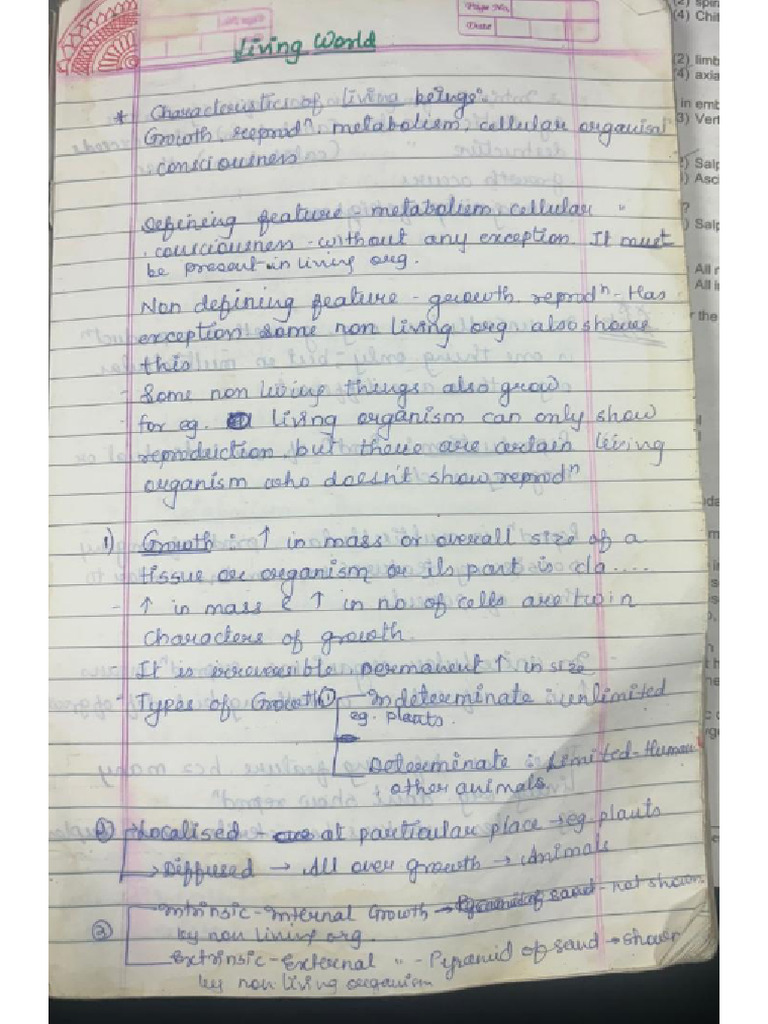 Page No.
Date
Living World
* Characteristics of living beings -
Growth, reprodⁿ, metabolism, cellular organisaⁿ
consciousness
Defining feature - metabolism, cellular "
consciousness - without any exception. It must
be present in living org.
Non defining feature - growth, reprodⁿ - Has
exception some non living org also shows
this
- Some non living things also grow
- for eg. living organism can only show
reproduction but there are certain living
organism who doesn't show reprodⁿ
1) Growth :- ↑ in mass or overall size of a
tissue or organism or its part is k/a ....
- ↑ in mass & ↑ in no. of cells are twin
characters of growth.
It is irreversible permanent ↑ in size
- Types of Growth ① Indeterminate :- unlimited
eg. plants.
Determinate :- Limited - Human
other animals.
② Localised - at particular place → eg. plants
→ Diffused → All over growth → Animals
③ Intrinsic - Internal Growth → not shown
by non living org.
Extrinsic - External " - Pyramid of sand → shown
by non living organism
(2) spin
(4) Chit
(2) limb
(4) axia
in emb
(3) Vert
) Salp
) Asc
?
) Salp
All r
All i
r the